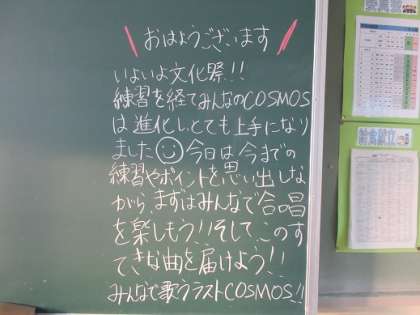 おはようございます
いよいよ文化祭!!
練習を経てみんなのCOSMOS
は進化しとても上手になり
ました 今日は今までの
練習やポイントを思い出しな
がら、まずはみんなで合唱
を楽しもう!!そして、このす
てきな曲を届けよう!!
みんなで歌うラストCOSMOS!!